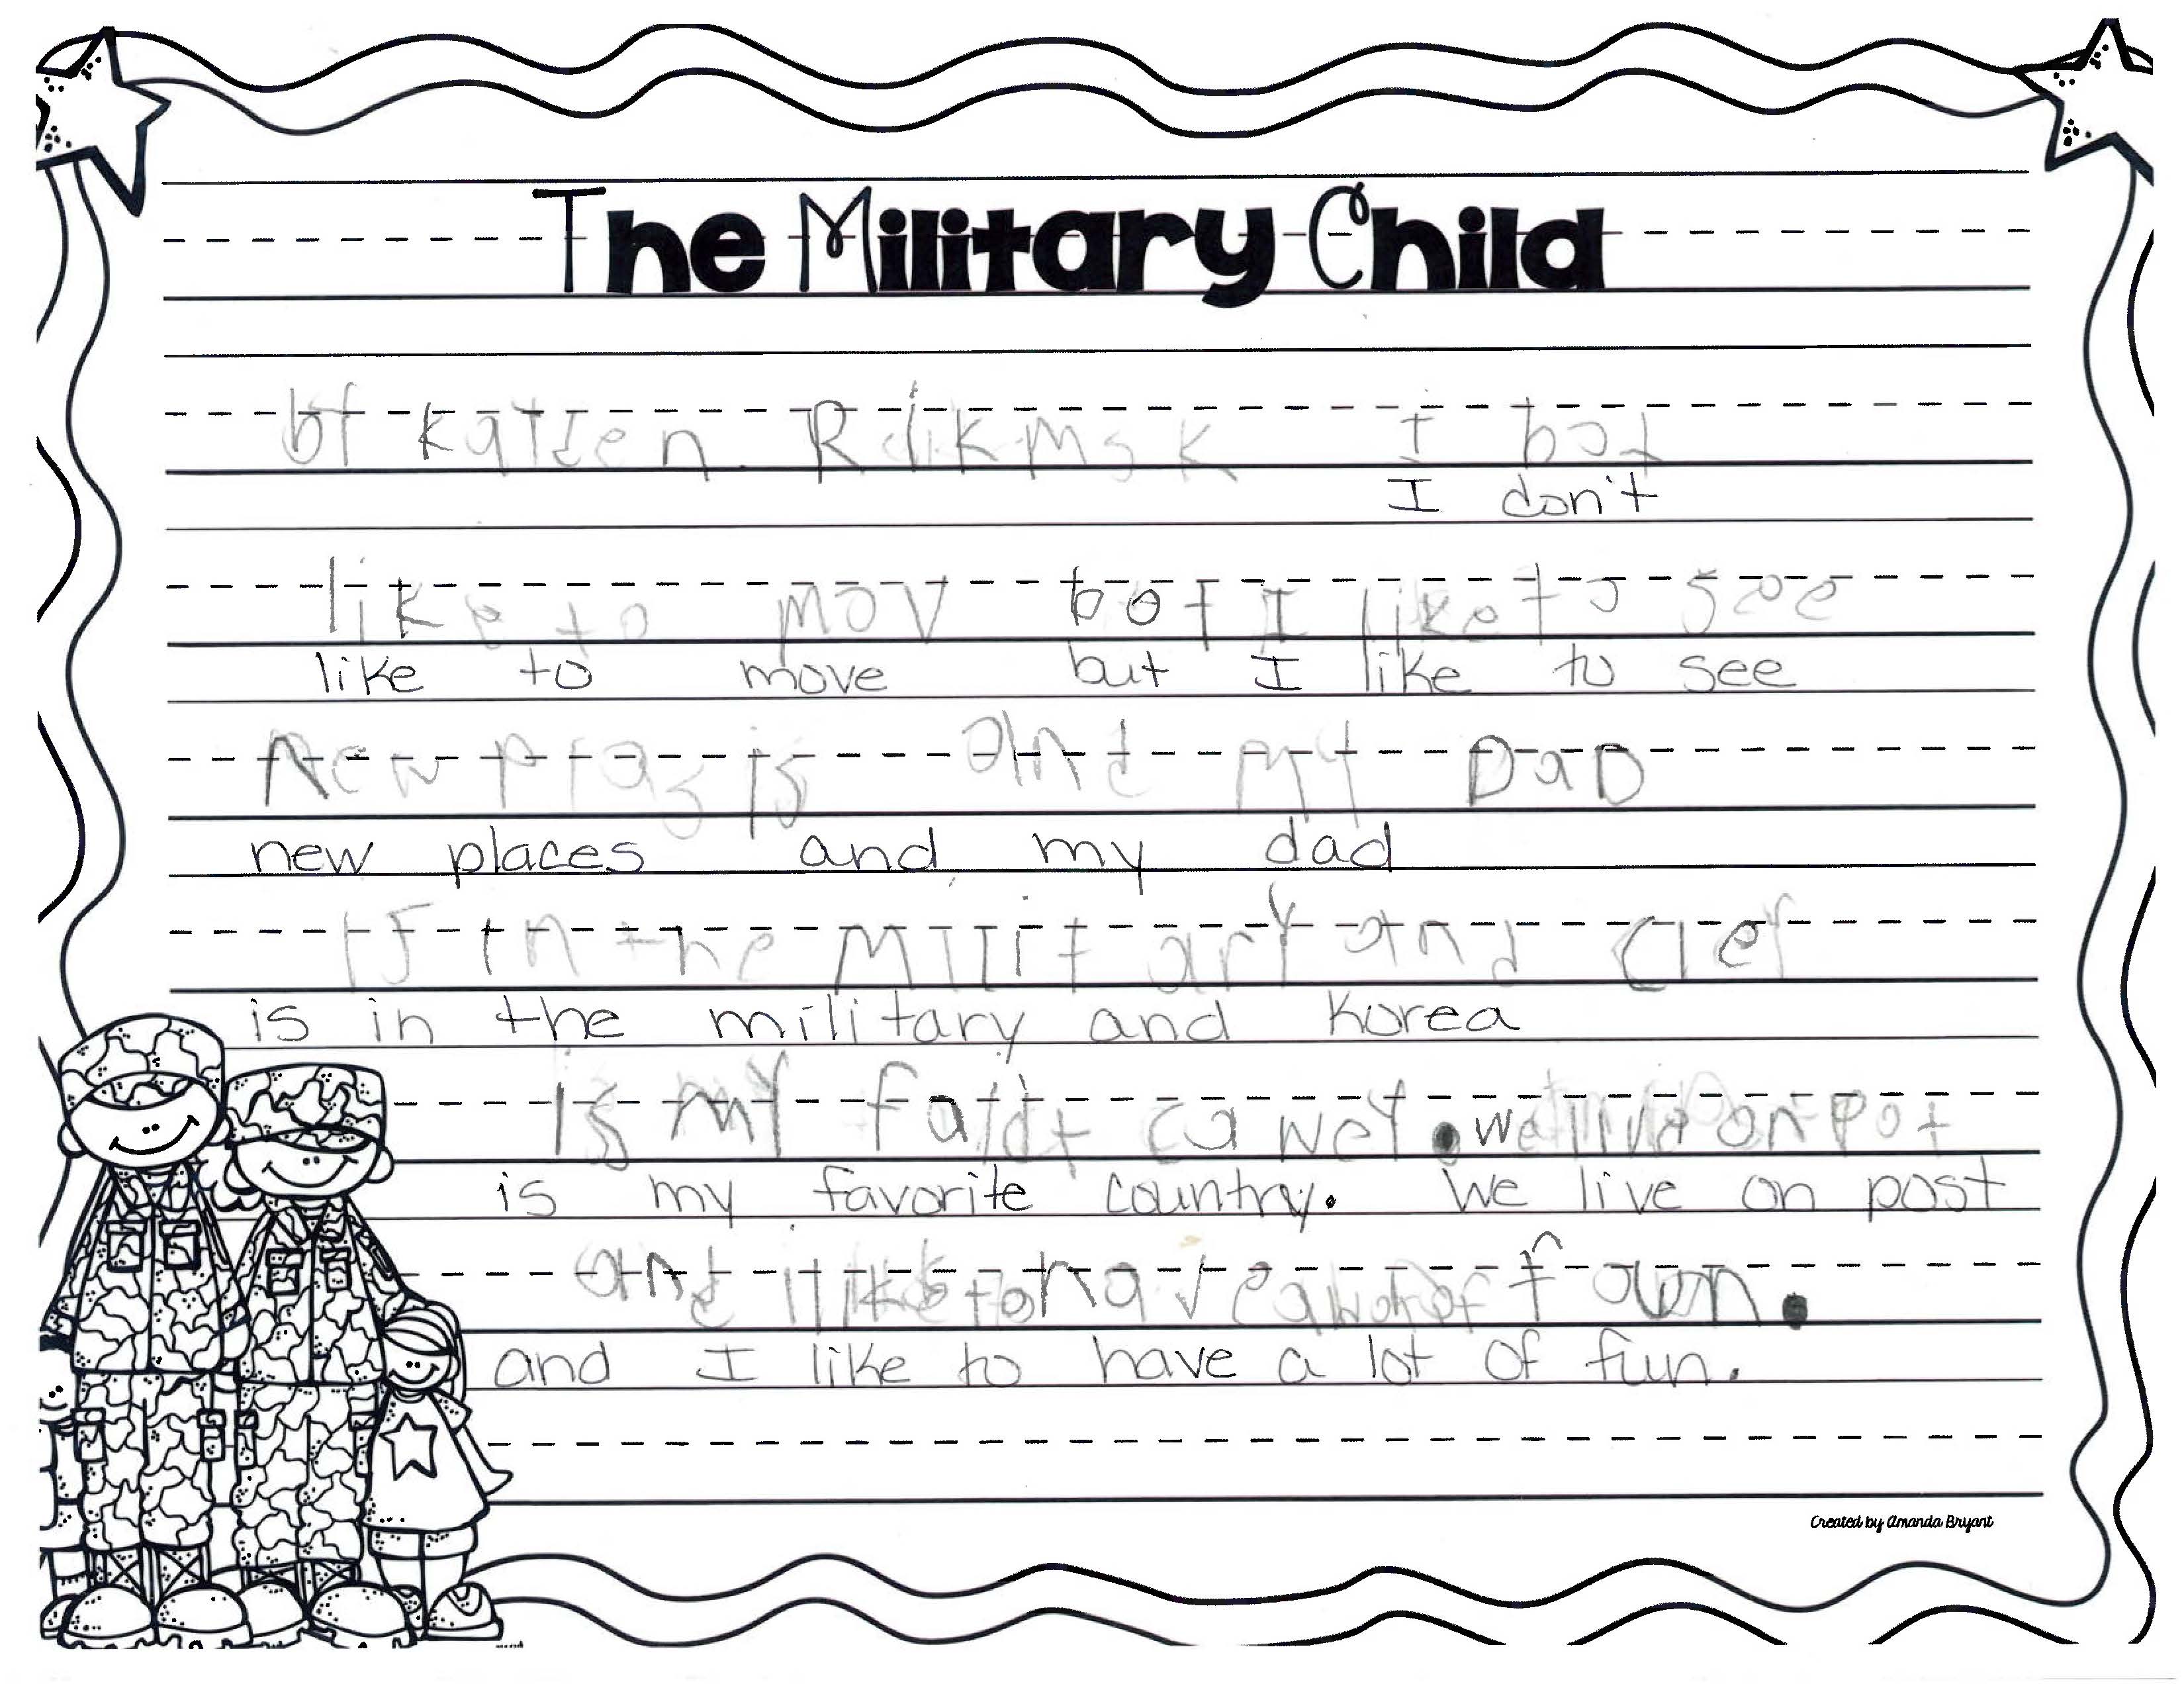 The Military Child
bf Katlen I bot
I don't
like to mov bot I like to see
like to move but I like to see
New plaz is and My DaD
new places and my dad
IS in the Military and
is in the military and Korea
is my we live on Pot
is my favorite country. We live on post
and I like to have a lot of foun.
and I like to have a lot of fun.
Created by Amanda Bryant